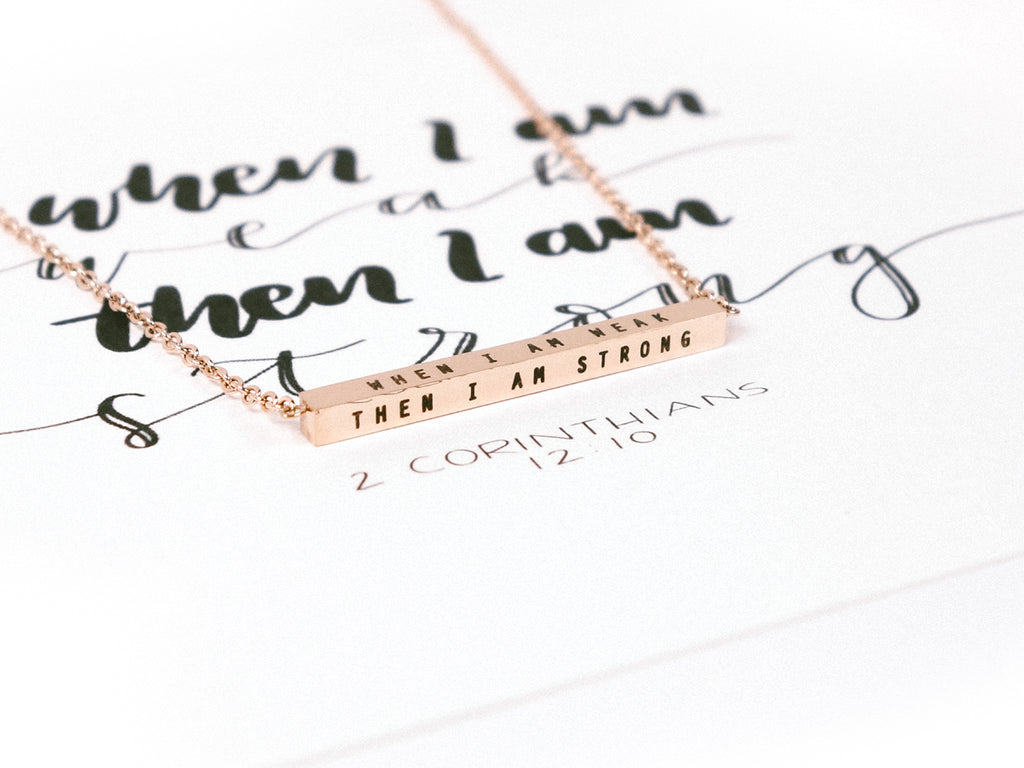 when I am
weak
then I am
strong
WHEN I AM WEAK
THEN I AM STRONG
2 CORINTHIANS
12:10